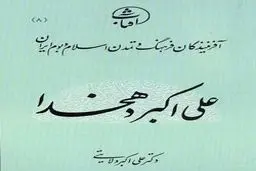 (۸)
آفرینندگان فرهنگ و تمدن اسلام و بوم ایران
علی اکبر دهخدا
دکتر علی اکبر ولایتی